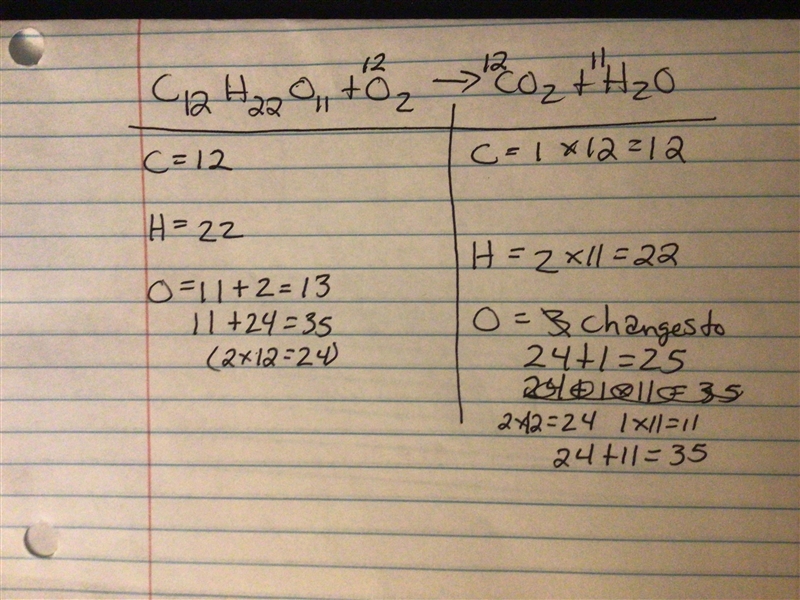 C₁₂H₂₂O₁₁ + 12O₂ → 12CO₂ + 11H₂O
C = 12
H = 22
O = 11 + 2 = 13
11 + 24 = 35
(2 × 12 = 24)
C = 1 × 12 = 12
H = 2 × 11 = 22
O = 3 changes to
24 + 1 = 25
2×12 = 24 1×11 = 11
24 + 11 = 35